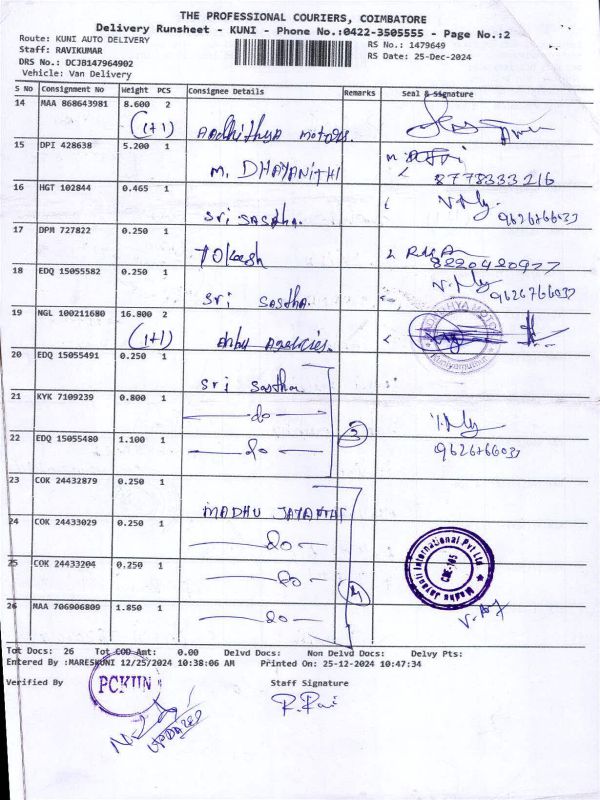 THE PROFESSIONAL COURIERS, COIMBATORE
Delivery Runsheet - KUNI - Phone No.:0422-3505555 - Page No.:2
Route: KUNI AUTO DELIVERY
RS No.: 1479649
Staff: RAVIKUMAR
RS Date: 25-Dec-2024
DRS No.: DCJB147964902
Vehicle: Van Delivery
S No Consignment No Weight PCS Consignee Details Remarks Seal & Signature
14 MAA 868643981 8.600 2
(1+1) Aadhithya motors.
15 DPI 428638 5.200 1
M. DHAYANITHI 8778333216
16 HGT 102844 0.465 1
Sri Sastha. 9626766033
17 DPM 727822 0.250 1
8220420977
18 EDQ 15055582 0.250 1
Sri Sastha. 9626766033
19 NGL 100211680 16.800 2
(1+1) Agencies.
20 EDQ 15055491 0.250 1
Sri Sastha
21 KYK 7109239 0.800 1
do
3
22 EDQ 15055480 1.100 1
do 9626766033
23 COK 24432879 0.250 1
MADHU JAYANTHI
24 COK 24433029 0.250 1
do
25 COK 24433204 0.250 1
do
4
Madhu Jayanti International Pvt Ltd
CBE-105
26 MAA 706906809 1.850 1
do
Tot Docs: 26 Tot COD Amt: 0.00 Delvd Docs: Non Delvd Docs: Delvy Pts:
Entered By :MARESKUNI 12/25/2024 10:38:06 AM Printed On: 25-12-2024 10:47:34
Verified By Staff Signature
PCKUN
UPDATED
R. Ravi